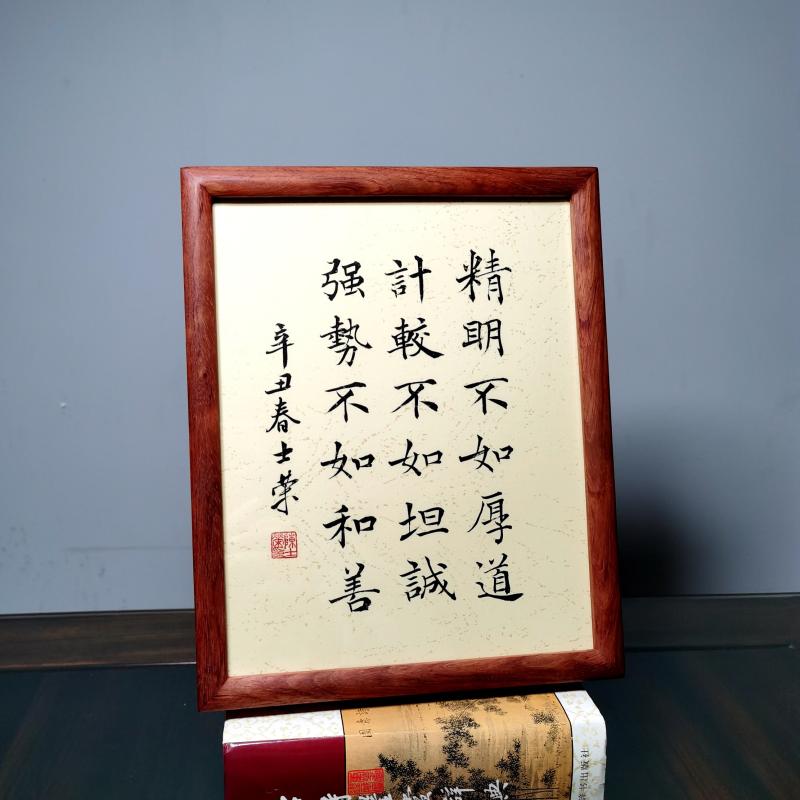 精明不如厚道
計較不如坦誠
强勢不如和善
辛丑春士荣